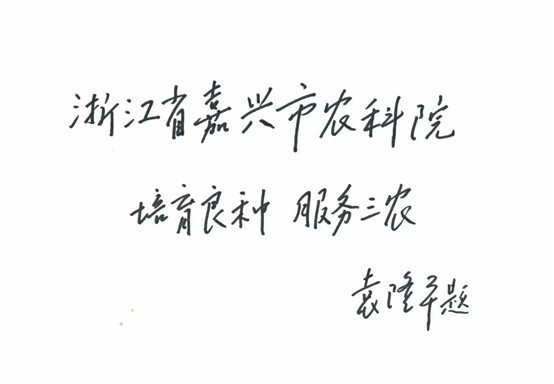 浙江省嘉兴市农科院
培育良种 服务三农
袁隆平题